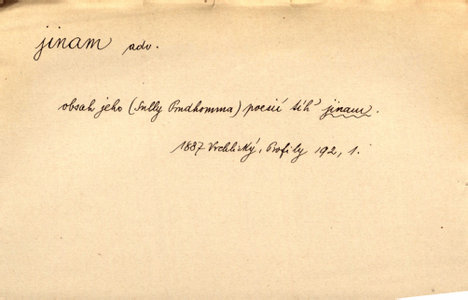 jinam adv.
obsah jeho (Sully Prudhomma) poesií tíh' jinam.
1887 Vrchlický, Profily 192, 1.